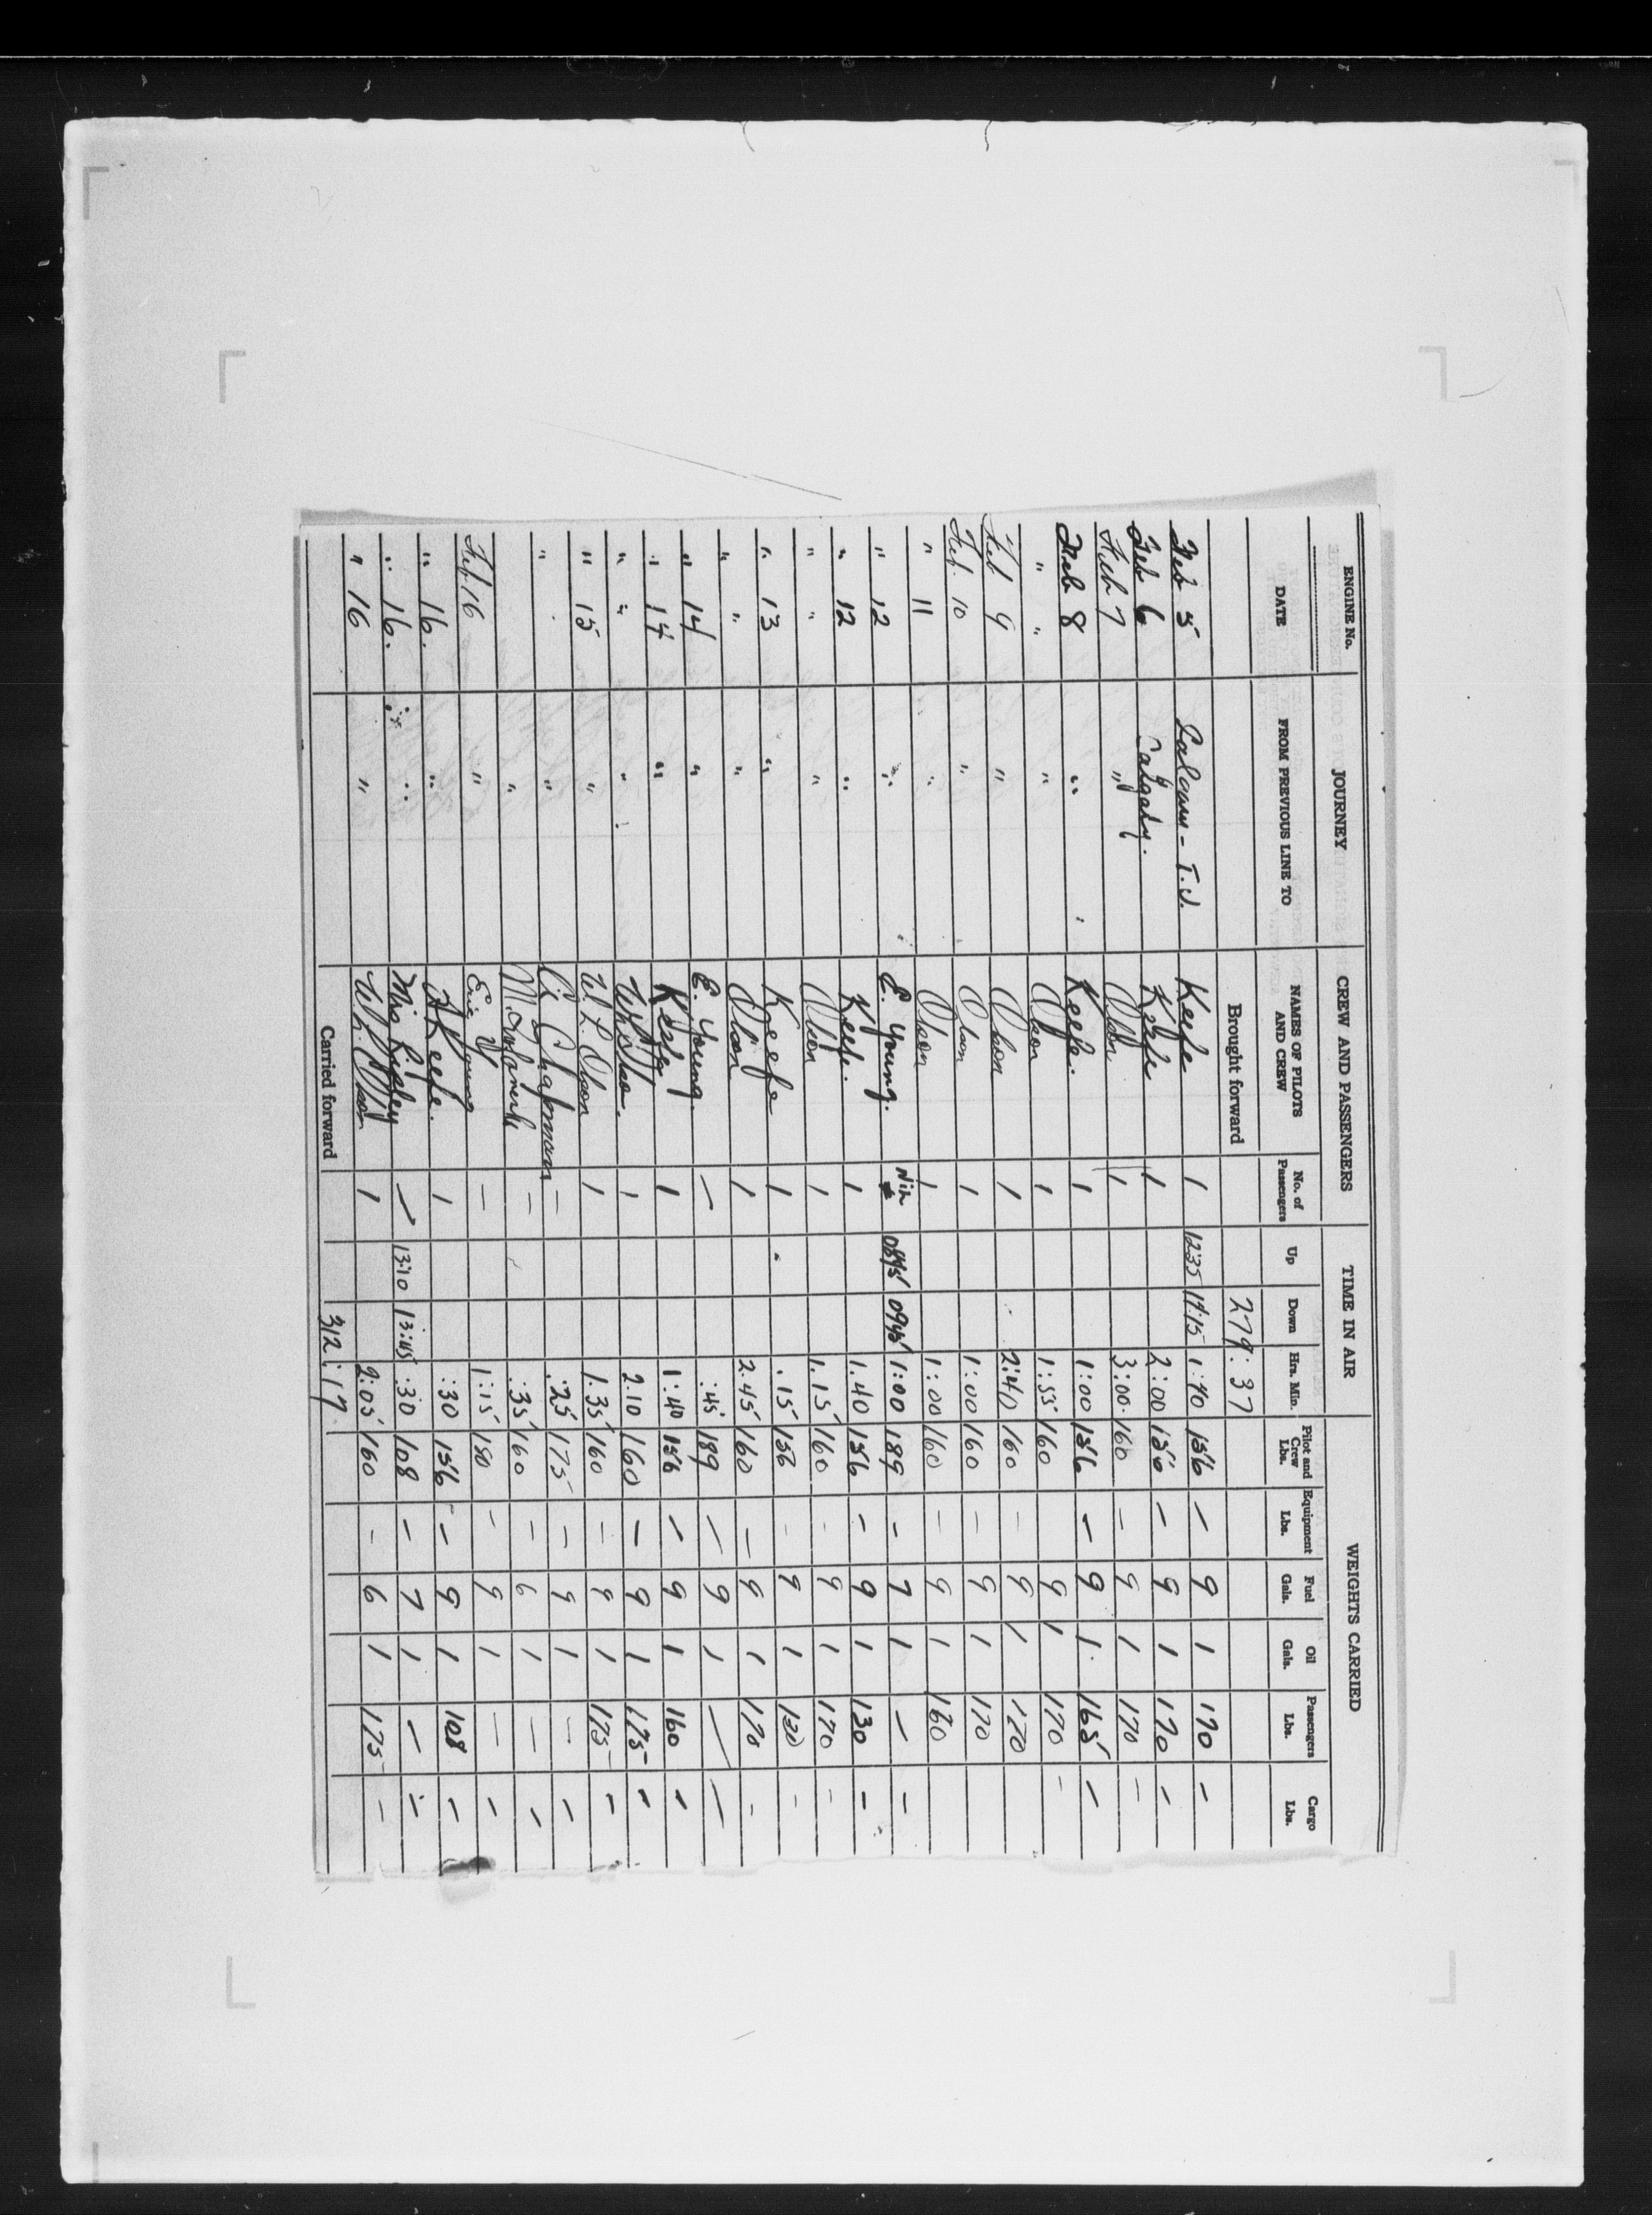 ENGINE No. JOURNEY CREW AND PASSENGERS TIME IN AIR WEIGHTS CARRIED
DATE FROM PREVIOUS LINE TO NAMES OF PILOTS AND CREW No. of Passengers Up Down Hrs. Min. Pilot and Crew Lbs. Equipment Lbs. Fuel Gals. Oil Gals. Passengers Lbs. Cargo Lbs.
Brought forward 279:37
Feb 5 Keefe 1 12:35 14:15 1:40 156 — 9 1 170 -
Feb 6 Calgary. Keefe 1 2:00 156 — 9 1 170 -
Feb 7 " Olson 1 3:00 160 — 9 1 170 -
Feb 8 " Keefe. 1 1:00 156 — 9 1 165 -
" " " Olson 1 1:55 160 9 1 170 -
Feb 9 " Olson 1 2:40 160 — 9 1 170
Feb. 10 " Olson 1 1:00 160 — 9 1 170
" 11 " Olson 1 1:00 160 — 9 1 160
" 12 " E. Young. Nil 0845 0945 1:00 189 - 7 1 — -
" 12 " Keefe. 1 1.40 156 - 9 1 130 -
" " " Olson 1 1.15 160 - 9 1 170 -
" 13 " Keefe 1 1.15 156 - 9 1 130 -
" " " Olson 1 2.45 160 — 9 1 170 -
" 14 " E. Young. — :45 189 — 9 1 — —
" 14 " Keefe 1 1:40 156 — 9 1 160 -
" " " 1 2.10 160 — 9 1 175 -
" 15 " W. L. Olson 1 1.35 160 — 9 1 175 -
" " Chapman — :25 175 — 9 1 — -
" — :35 160 — 6 1 — -
Feb. 16 " Eric Young — 1:15 180 - 9 1 — -
" 16. " A Keefe. 1 :30 156 - 9 1 108 -
" 16. " Ridley — 13:10 13:45 :30 108 - 7 1 — -
" 16 " W. L. Olson 1 2:05 160 - 6 1 175 -
Carried forward 312:17